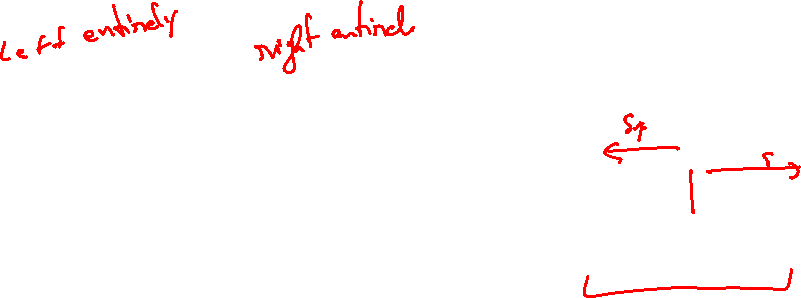 Left entirely
right entirel
S